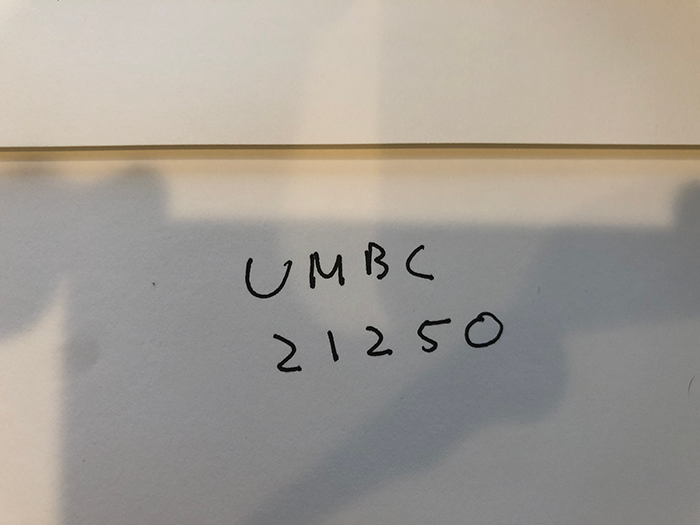 UMBC
21250